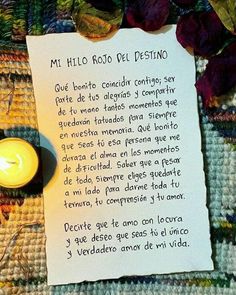 MI HILO ROJO DEL DESTINO
Qué bonito coincidir contigo; ser
parte de tus alegrías y compartir
de tu mano tantos momentos que
quedarán tatuados para siempre
en nuestra memoria. Qué bonito
que seas tú esa persona que me
abraza el alma en los momentos
de dificultad. Saber que a pesar
de todo, siempre eliges quedarte
a mi lado para darme toda tu
ternura, tu comprensión y tu amor.
Decirte que te amo con locura
y que deseo que seas tú el único
y verdadero amor de mi vida.